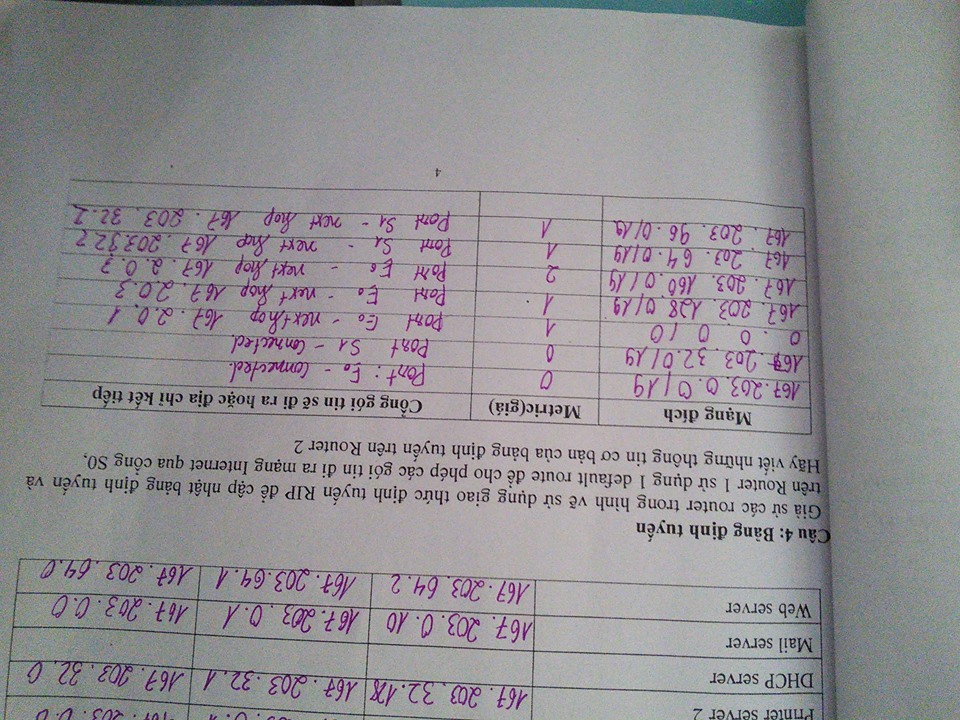 Printer server 2 167.203.32.128 167.203.32.1 167.203.32.0
DHCP server
Mail server 167.203.0.10 167.203.0.1 167.203.0.0
Web server 167.203.64.2 167.203.64.1 167.203.64.0
Câu 4: Bảng định tuyến
Giả sử các router trong hình vẽ sử dụng giao thức định tuyến RIP để cập nhật bảng định tuyến và
trên Router 1 sử dụng 1 default route để cho phép các gói tin đi ra mạng Internet qua cổng S0,
Hãy viết những thông tin cơ bản của bảng định tuyến trên Router 2
Mạng đích Metric(giá) Cổng gói tin sẽ đi ra hoặc địa chỉ kết tiếp
167.203.0.0/19 0 Port: E0 - connected.
167.203.32.0/19 0 Port S1 - connected
0.0.0.0/0 1 Port E0 - next hop 167.2.0.1
167.203.128.0/19 1 Port E0 - next hop 167.2.0.3
167.203.160.0/19 2 Port E0 - next hop 167.2.0.3
167.203.64.0/19 1 Port S1 - next hop 167.203.32.2
167.203.96.0/19 1 Port S1 - next hop 167.203.32.2
4